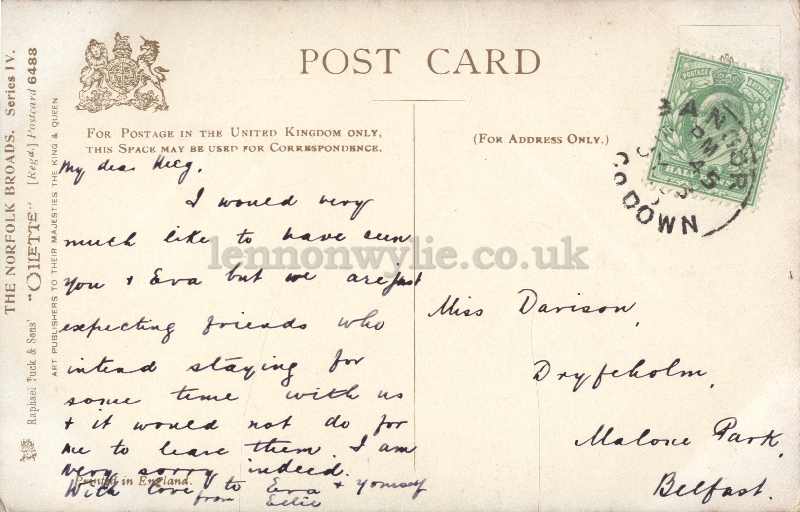 POST CARD
FOR POSTAGE IN THE UNITED KINGDOM ONLY,
THIS SPACE MAY BE USED FOR CORRESPONDENCE.
(FOR ADDRESS ONLY.)
THE NORFOLK BROADS. Series IV.
Raphael Tuck & Sons' "OILETTE" [Regd.] Postcard 6488
ART PUBLISHERS TO THEIR MAJESTIES THE KING & QUEEN
My dear Meg,
I would very
much like to have seen
you + Eva but we are just
expecting friends who
intend staying for
some time with us
+ it would not do for
me to leave them. I am
very sorry indeed.
With love to Eva + yourself
from
Printed in England.
Miss Davison,
Dryfeholm,
Malone Park,
Belfast.
POSTAGE
HALF
BANGOR
PM
45
CO DOWN
lennonwylie.co.uk